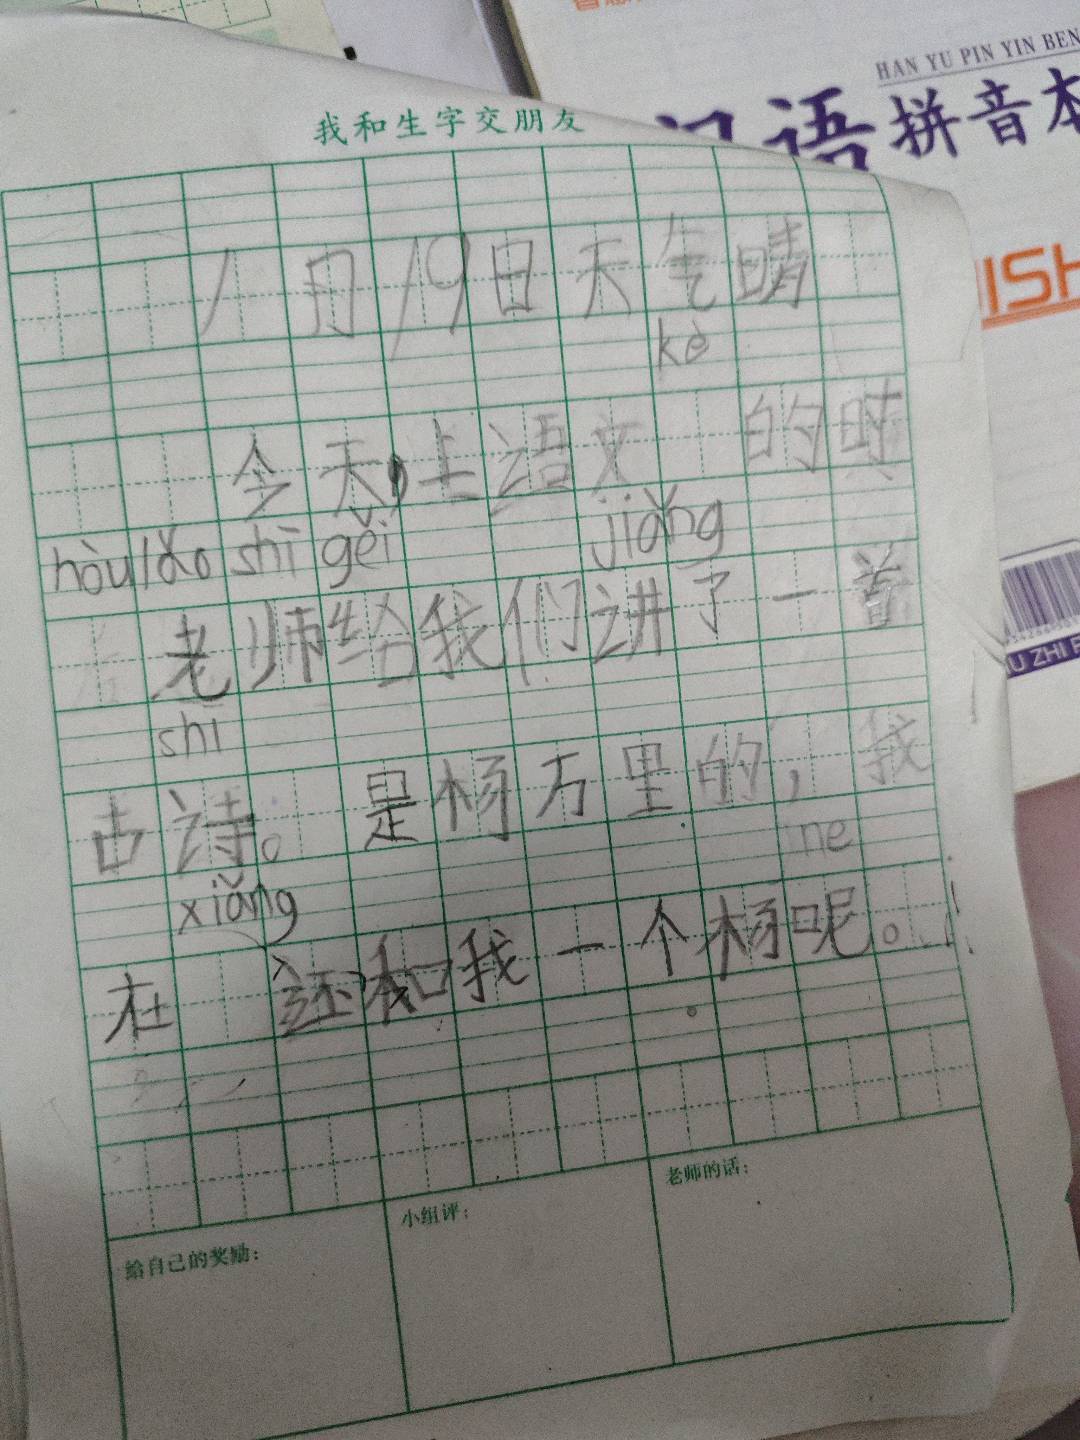 HAN YU PIN YIN BEN
汉语拼音本
ISH
ZHI
我和生字交朋友
1月19日天气晴
kè
今天,上语文 的时
hòu lǎo shī gěi jiǎng
老师给我们讲了一首
shī
古诗。是杨万里的,我
ne
xiǎng
在 还和我一个杨呢。
给自己的奖励:
小组评:
老师的话: